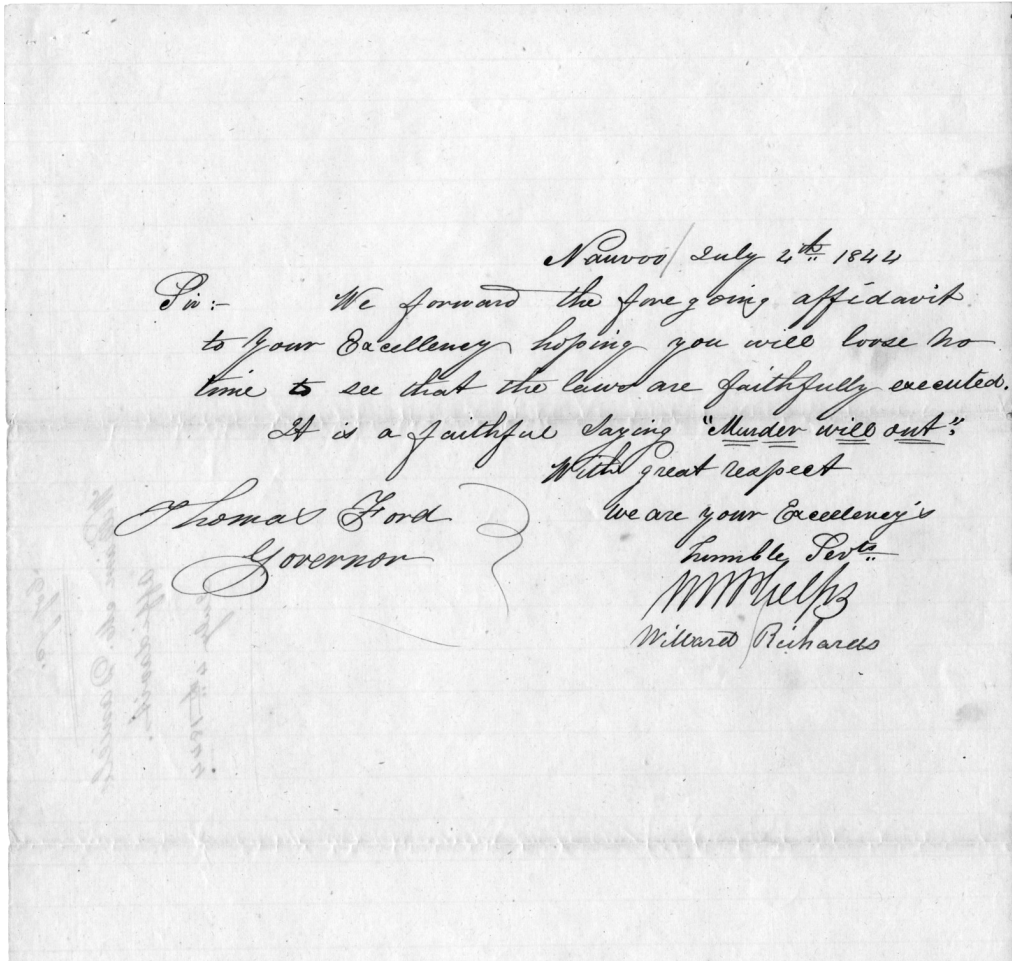 Nauvoo July 4th 1844
Sir:- We forward the foregoing affidavit
to your Excellency hoping you will loose no
time to see that the laws are faithfully executed.
It is a faithful saying "Murder will out".
With great respect
we are your Excellency's
humble Servts
W W Phelps
Willard Richards
Thomas Ford
Governor
William M. Daniels
affidavit.
July 4th 1844